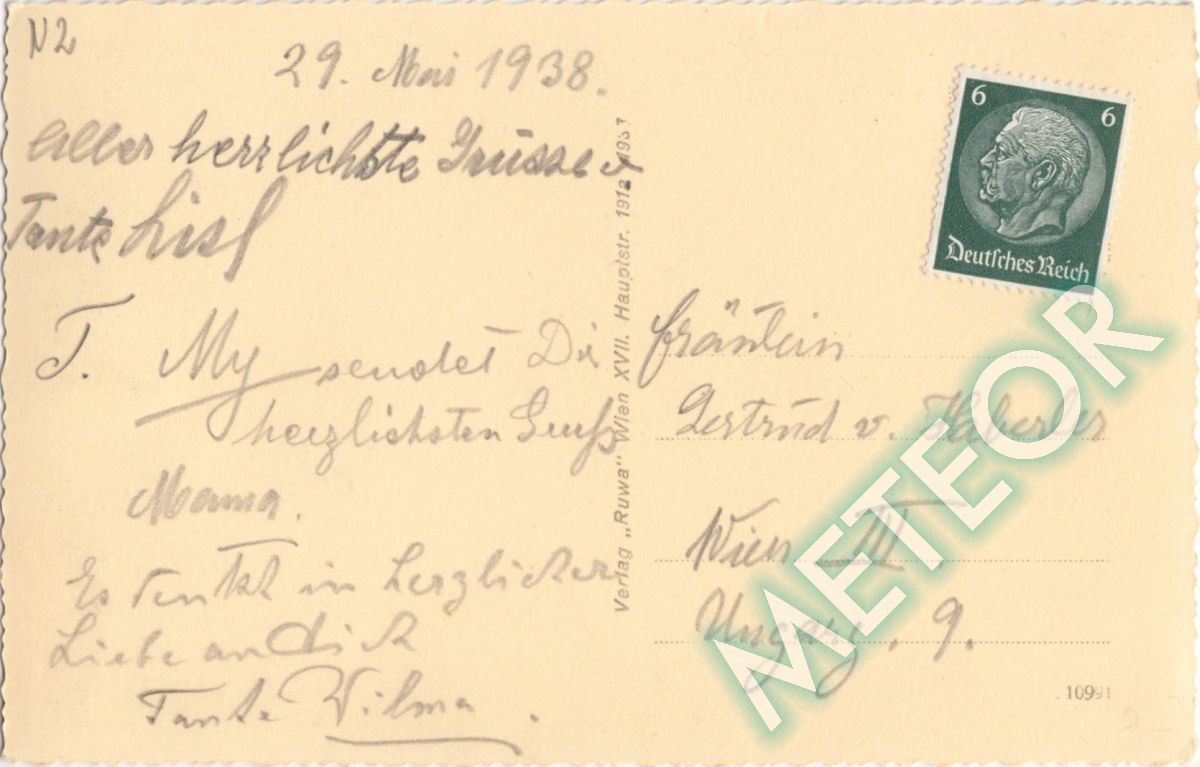 N2
29. Mai 1938.
Allerherzlichste Grüsse
Tante Lisl
T. My sendet Dir
herzlichsten Gruß
Mama.
Es denkt in herzlicher
Liebe an Dich
Tante Wilma.
Verlag „Ruwa“ Wien XVII. Hauptstr. 1937
6 6
Deutsches Reich
Fräulein
Gertrud v. Haberler
Wien III
Ungarg. 9.
10991
METEOR